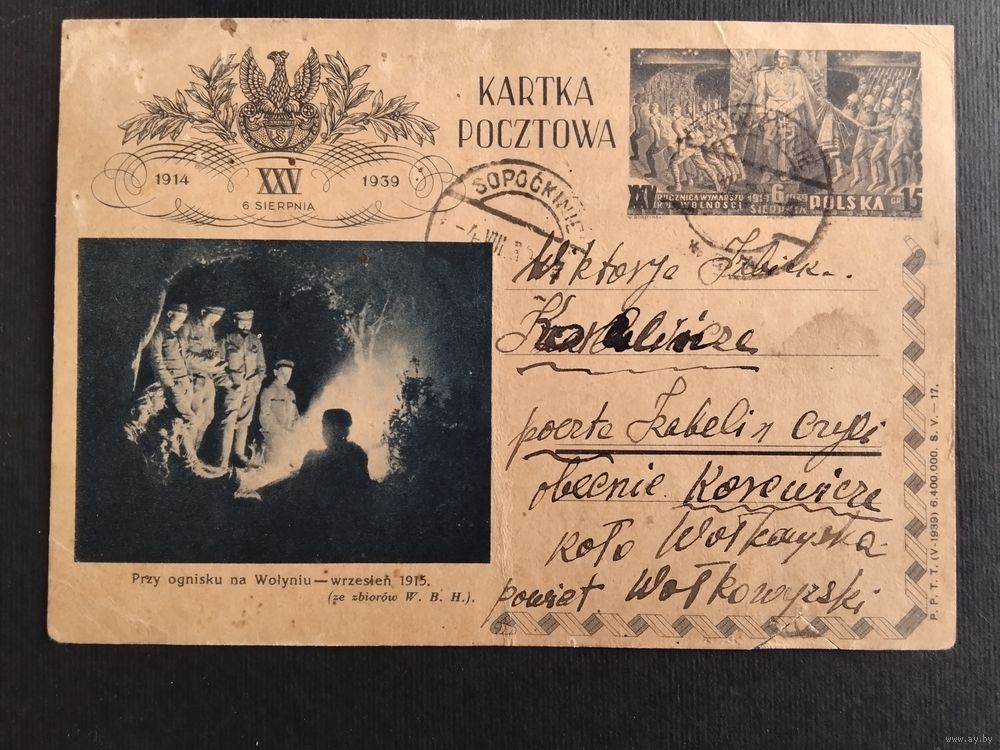 KARTKA
POCZTOWA
S
1914 XXV 1939
6 SIERPNIA
XXV ROCZNICA WYMARSZU 1914 6 1939
KU WOLNOŚCI SIERPNIA POLSKA GR 15
SOPOĆKINIE
-4.VIII.3
Wiktorja
poczta Izabelin czyli
obecnie Rosewicze
koło Wołkowyska
powiet Wołkowyski
Przy ognisku na Wołyniu—wrzesień 1915.
(ze zbiorów W. B. H.).
P. P. T. T. (V-1939) 6.400.000. S. V. – 17.
www.ay.by